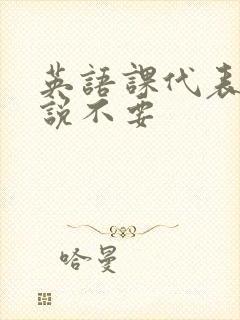 英語課代表
説不要
哈曼